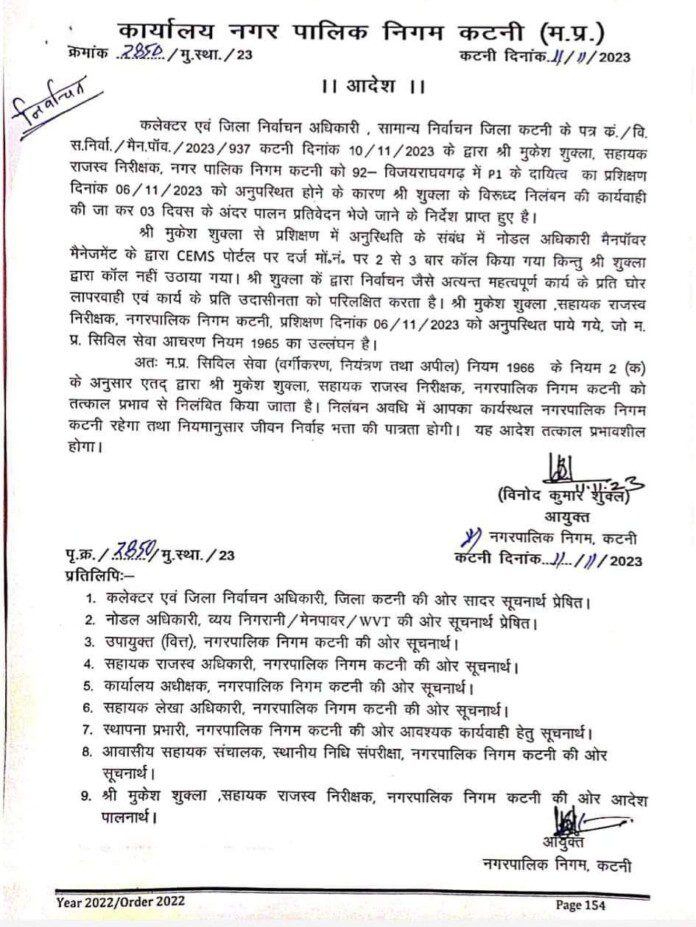 कार्यालय नगर पालिक निगम कटनी (म.प्र.)
क्रमांक 2850/मु.स्था./23 कटनी दिनांक 11/11/2023
।। आदेश ।।
निर्वाचन
कलेक्टर एवं जिला निर्वाचन अधिकारी , सामान्य निर्वाचन जिला कटनी के पत्र कं./वि.
स.निर्वा./मैन.पॉव./2023/937 कटनी दिनांक 10/11/2023 के द्वारा श्री मुकेश शुक्ला, सहायक
राजस्व निरीक्षक, नगर पालिक निगम कटनी को 92– विजयराघवगढ़ में P1 के दायित्व का प्रशिक्षण
दिनांक 06/11/2023 को अनुपस्थित होने के कारण श्री शुक्ला के विरूध्द निलंबन की कार्यवाही
की जा कर 03 दिवस के अंदर पालन प्रतिवेदन भेजे जाने के निर्देश प्राप्त हुए है।
श्री मुकेश शुक्ला से प्रशिक्षण में अनुस्थिति के संबंध में नोडल अधिकारी मैनपॉवर
मैनेजमेंट के द्वारा CEMS पोर्टल पर दर्ज मों.नं. पर 2 से 3 बार कॉल किया गया किन्तु श्री शुक्ला
द्वारा कॉल नहीं उठाया गया। श्री शुक्ला कें द्वारा निर्वाचन जैसे अत्यन्त महत्वपूर्ण कार्य के प्रति घोर
लापरवाही एवं कार्य के प्रति उदासीनता को परिलक्षित करता है। श्री मुकेश शुक्ला ,सहायक राजस्व
निरीक्षक, नगरपालिक निगम कटनी, प्रशिक्षण दिनांक 06/11/2023 को अनुपस्थित पाये गये, जो म.
प्र. सिविल सेवा आचरण नियम 1965 का उल्लंघन है।
अतः म.प्र. सिविल सेवा (वर्गीकरण, नियंत्रण तथा अपील) नियम 1966 के नियम 2 (क)
के अनुसार एतद् द्वारा श्री मुकेश शुक्ला, सहायक राजस्व निरीक्षक, नगरपालिक निगम कटनी को
तत्काल प्रभाव से निलंबित किया जाता है। निलंबन अवधि में आपका कार्यस्थल नगरपालिक निगम
कटनी रहेगा तथा नियमानुसार जीवन निर्वाह भत्ता की पात्रता होगी। यह आदेश तत्काल प्रभावशील
होगा।
11.11.23
(विनोद कुमार शुक्ल)
आयुक्त
नगरपालिक निगम, कटनी
पृ.क्र./2850/मु.स्था./23 कटनी दिनांक 11/11/2023
प्रतिलिपिः–
1. कलेक्टर एवं जिला निर्वाचन अधिकारी, जिला कटनी की ओर सादर सूचनार्थ प्रेषित।
2. नोडल अधिकारी, व्यय निगरानी/मेनपावर/WVT की ओर सूचनार्थ प्रेषित।
3. उपायुक्त (वित्त), नगरपालिक निगम कटनी की ओर सूचनार्थ।
4. सहायक राजस्व अधिकारी, नगरपालिक निगम कटनी की ओर सूचनार्थ।
5. कार्यालय अधीक्षक, नगरपालिक निगम कटनी की ओर सूचनार्थ।
6. सहायक लेखा अधिकारी, नगरपालिक निगम कटनी की ओर सूचनार्थ।
7. स्थापना प्रभारी, नगरपालिक निगम कटनी की ओर आवश्यक कार्यवाही हेतु सूचनार्थ।
8. आवासीय सहायक संचालक, स्थानीय निधि संपरीक्षा, नगरपालिक निगम कटनी की ओर
सूचनार्थ।
9. श्री मुकेश शुक्ला ,सहायक राजस्व निरीक्षक, नगरपालिक निगम कटनी की ओर आदेश
पालनार्थ।
आयुक्त
नगरपालिक निगम, कटनी
Year 2022/Order 2022 Page 154